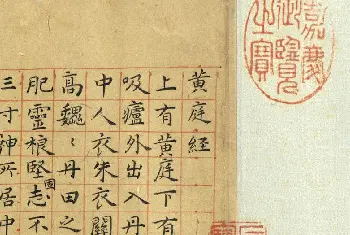 嘉慶
御覽
之寶
黄庭經
上有黄庭下有
吸廬外出入丹
中人衣朱衣關
髙巍〻丹田之
肥靈根堅志不
固
三寸神所居中